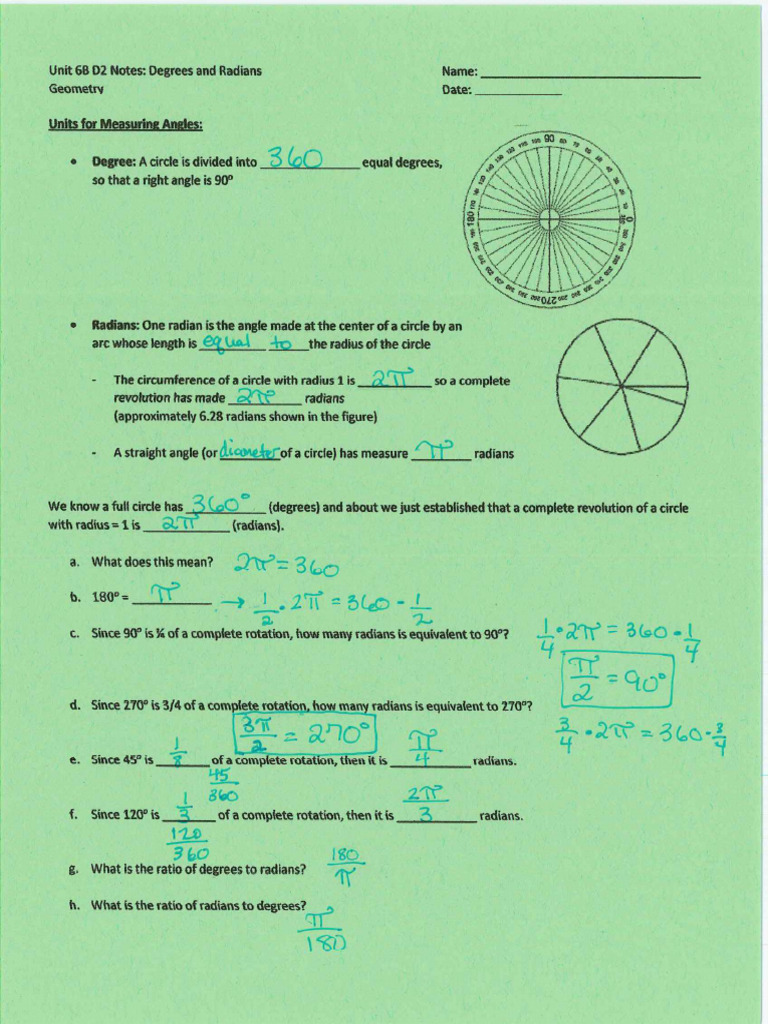 Unit 6B D2 Notes: Degrees and Radians Name: ____________
Geometry Date: ____________
Units for Measuring Angles:
• Degree: A circle is divided into 360 equal degrees,
so that a right angle is 90°
90
180
0
270
• Radians: One radian is the angle made at the center of a circle by an
arc whose length is equal to the radius of the circle
- The circumference of a circle with radius 1 is 2π so a complete
revolution has made 2π radians
(approximately 6.28 radians shown in the figure)
- A straight angle (or diameter of a circle) has measure π radians
We know a full circle has 360° (degrees) and about we just established that a complete revolution of a circle
with radius = 1 is 2π (radians).
a. What does this mean? 2π = 360
b. 180° = π → 1/2 · 2π = 360 · 1/2
c. Since 90° is ¼ of a complete rotation, how many radians is equivalent to 90°? 1/4 · 2π = 360 · 1/4
π/2 = 90°
d. Since 270° is 3/4 of a complete rotation, how many radians is equivalent to 270°?
3π/2 = 270° 3/4 · 2π = 360 · 3/4
e. Since 45° is 1/8 of a complete rotation, then it is π/4 radians.
45/360
f. Since 120° is 1/3 of a complete rotation, then it is 2π/3 radians.
120/360
g. What is the ratio of degrees to radians? 180/π
h. What is the ratio of radians to degrees?
π/180